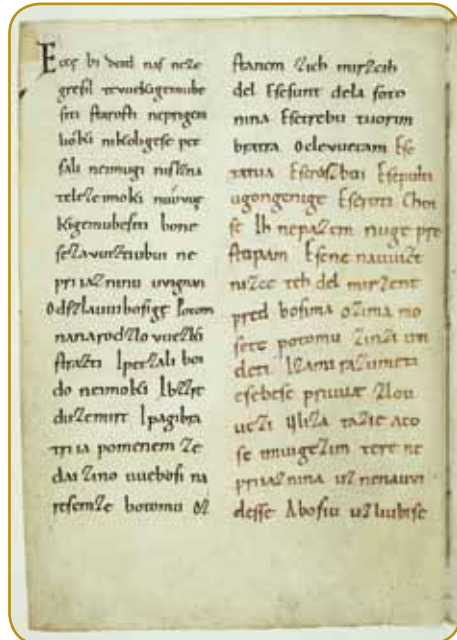 Ecce bi detd naſ neze
greſil tevuekigemube
ſiti ſtaroſti neprigem
lióki nikoligeſe pet
ſali neimugi niſlzna
telezeimoki nauúvue
kigemubeſiti bone
ſezavuiztiubui ne
priiazninu uvignan
Odſzlauuiboſige Potom
nanarodzlovuezki
ſtrazti Ipetzali boi
do neimoki Ibzzre
duzemirt Ipagibra
triia pomenem ze
dai zino uueboſi na
reſemze botomu oz
ſtanem zich mirzcih
del Eſeſunt dela ſoto
nina Eſetrebu tuorim
bratra Oclevuetam Eſe
tatua Eſerazboi Eſepulti
ugongenige Eſeroti Choi
ſe Ih nepazem nuge pre
ſtopam Eſene nauuizt
nizce teh del mirzene
pred boſima ozima mo
ſete potomu zinzi uvi
deti Izami razumeti
eſebeſe priuuæ zlou
uezi Uliza tazie aco
ſe imuigezim tere ne
priiaznina uznenauvi
deſſe Aboſiu uzliubiſe